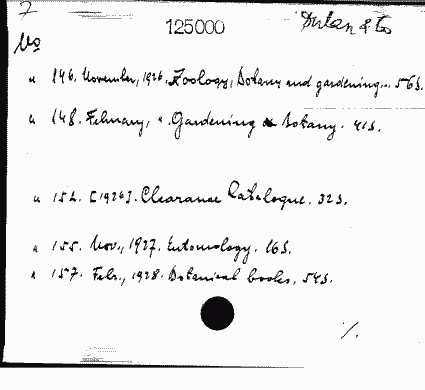 7
125000 Dulau & Co
No
" 146. November, 1926. Zoology, Botany and gardening... 56 S.
" 148. February, ". Gardening & Botany. 41 S.
" 152. [1926]. Clearance Catalogue. 32 S.
" 155. Nov., 1927. Entomology. 16 S.
" 157. Febr., 1928. Botanical books. 54 S.
%.